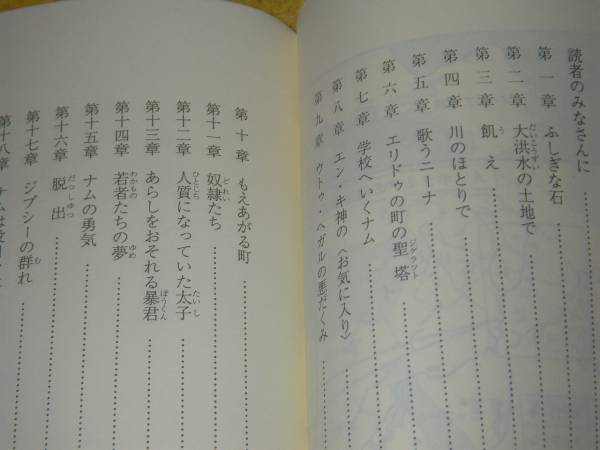 読者のみなさんに
第一章 ふしぎな石
第二章 大洪水の土地で
第三章 飢え
第四章 川のほとりで
第五章 歌うニーナ
第六章 エリドゥの町の聖塔
第七章 学校へいくナム
第八章 エン・キ神の〈お気に入り〉
第九章 ウトゥ・ヘガルの悪だくみ
第十章 もえあがる町
第十一章 奴隷たち
第十二章 人質になっていた太子
第十三章 あらしをおそれる暴君
第十四章 若者たちの夢
第十五章 ナムの勇気
第十六章 脱出
第十七章 ジプシーの群れ
第十八章 ナムは